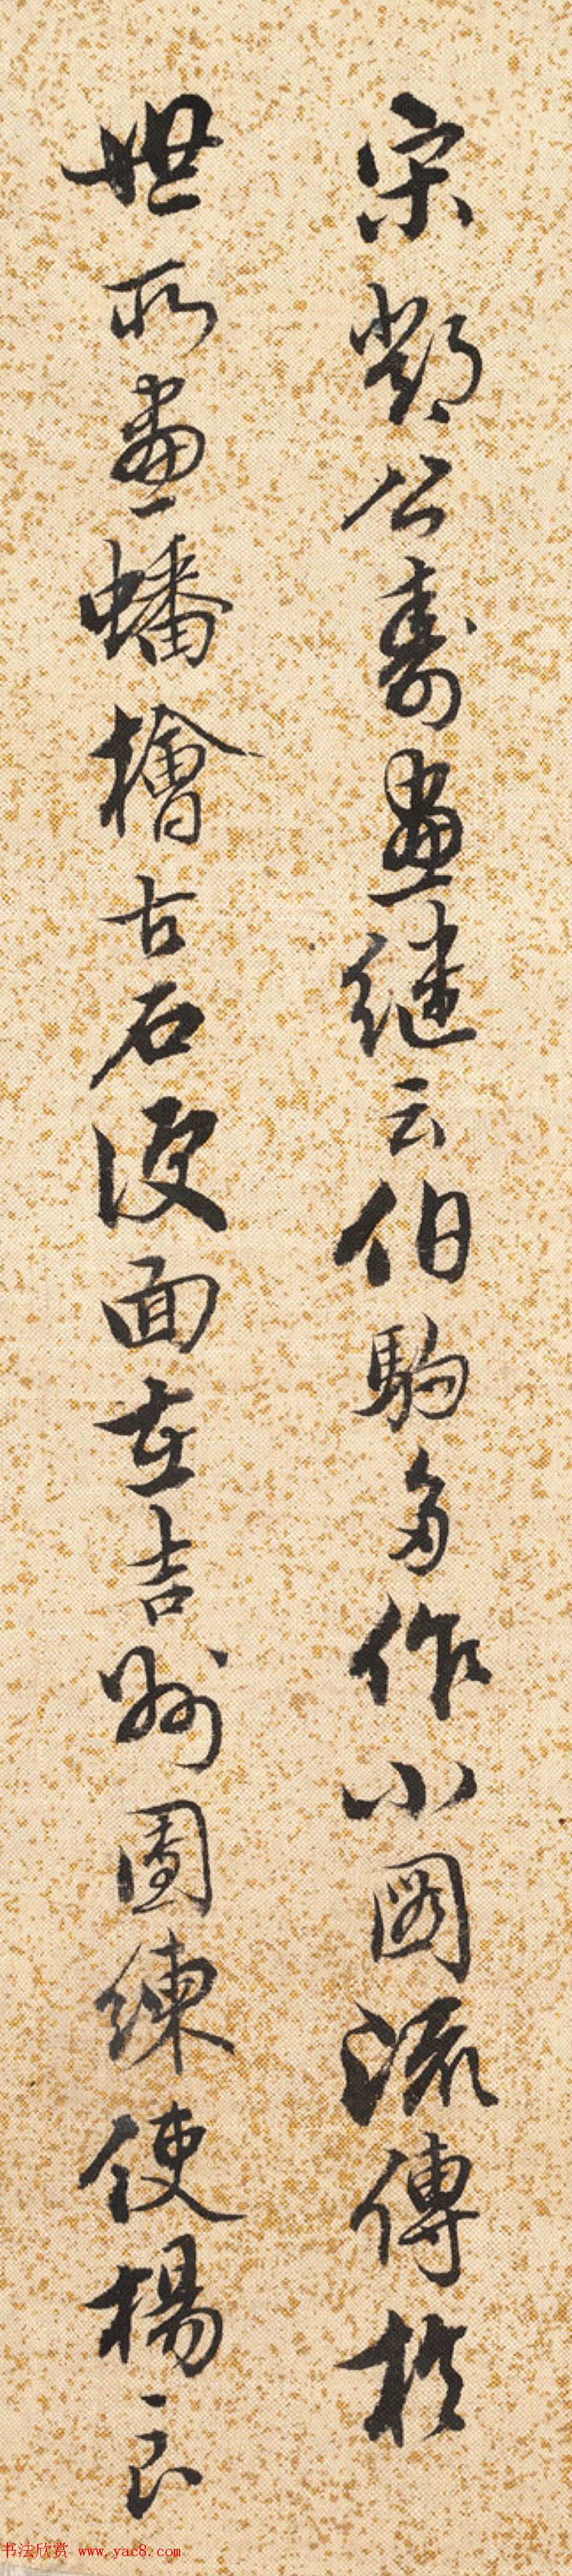 宋鄧公壽畫繼云伯駒多作小圖流傳於
世所畫蟠檜古石便面在吉州團練使楊良
书法欣赏 www.yac8.com